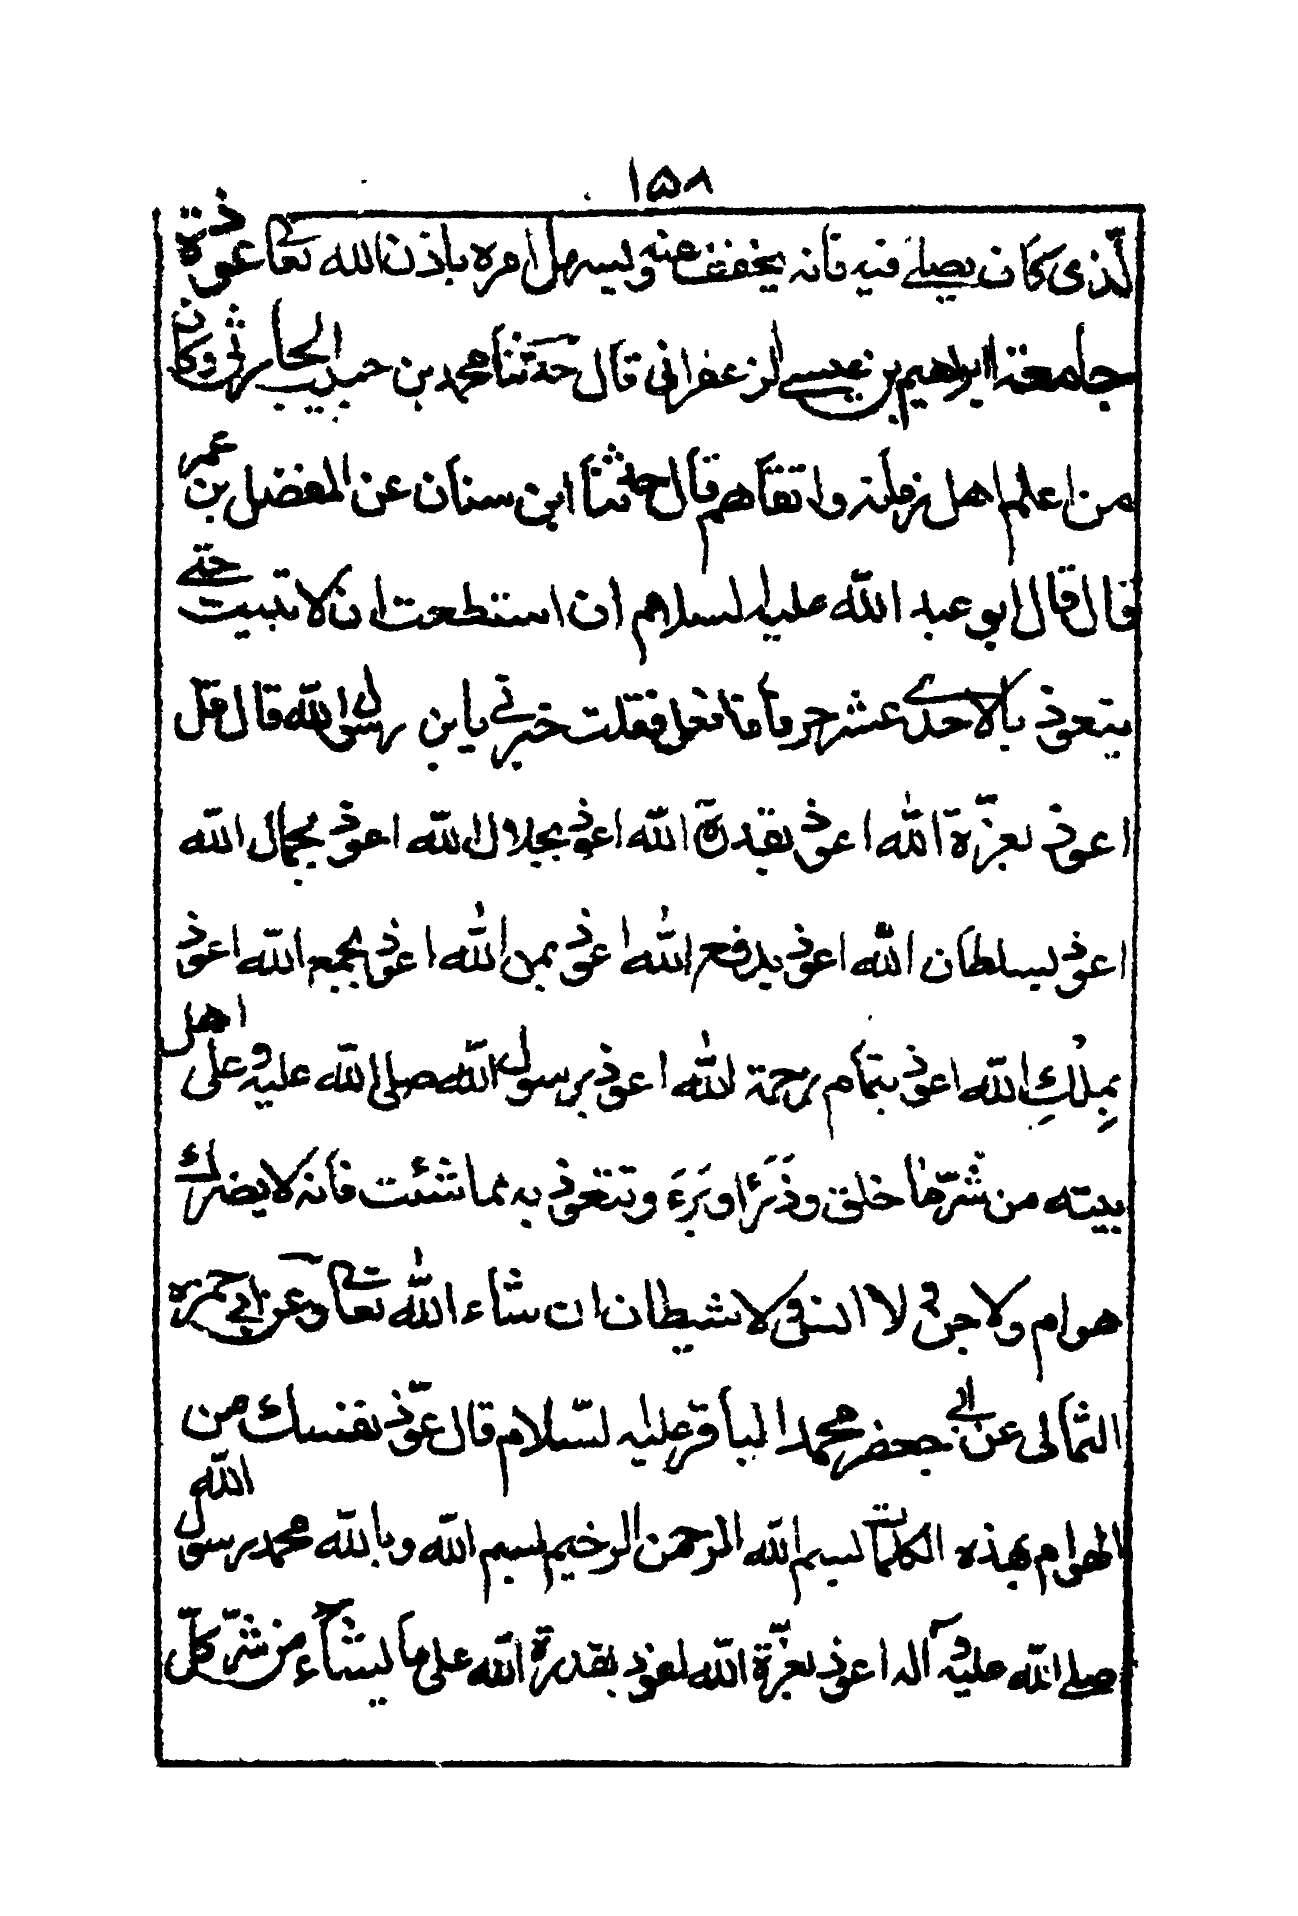 ١٥٨
لّذى كان يصلے فيه فانه يخفف عنه ويسهل امره باذن الله تعالى عوذة
جامعة ابراهيم بن عيسے الزعفرانى قال حدثنا محمد بن حبيب الحارثى وكان
من اعلم اهل زمانه واتقاهم قال حدثنا ابن سنان عن المفضل بن عمر
فقال قال ابو عبد الله عليه لسلام ان استطعت ان لا تبيت حتے
يتعوذ بالاحدے عشر حرفا فافعل فقلت خبرنى يابن رسول الله قال قل
اعوذ بعزّة الله اعوذ بقدرة الله اعوذ بجلال الله اعوذ بجمال الله
اعوذ بسلطان الله اعوذ بدفع الله اعوذ بمن الله اعوذ بجمع الله اعوذ
بملك الله اعوذ بتمام رحمة الله اعوذ برسول الله صلى الله عليه وعلى اهل
بيته من شرّ ما خلق وذرَئَ وبَرءَ وتتعوذ به مما شئت فانه لا يضرك
هوام ولا جن ولا انس ولا شيطان ان شاء الله تعالى وعن ابى حمزه
الثمالى عن ابى جعفر محمد الباقر عليه لسّلام قال عوّذ نفسك من
الهوام بهذه الكلمات بسم الله الرحمن الرحيم بسم الله وبالله محمد رسول الله
صلے الله عليه وآله اعوذ بعزّة الله اعوذ بقدرة الله على ما يشاء من شرّ كلّ